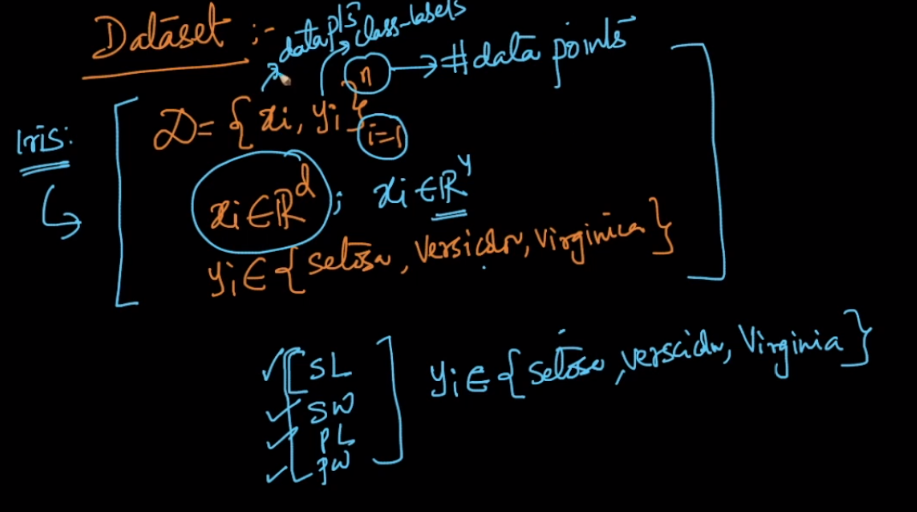 Dataset :-
datapts class-labels
n → #data points
Iris:
D = { xi, yi } i=1
xi ∈ ℝ^d ; xi ∈ ℝ^4
yi ∈ { setosa, versicolor, virginica }
SL
SW
PL
PW
yi ∈ { setosa, versicolor, Virginia }